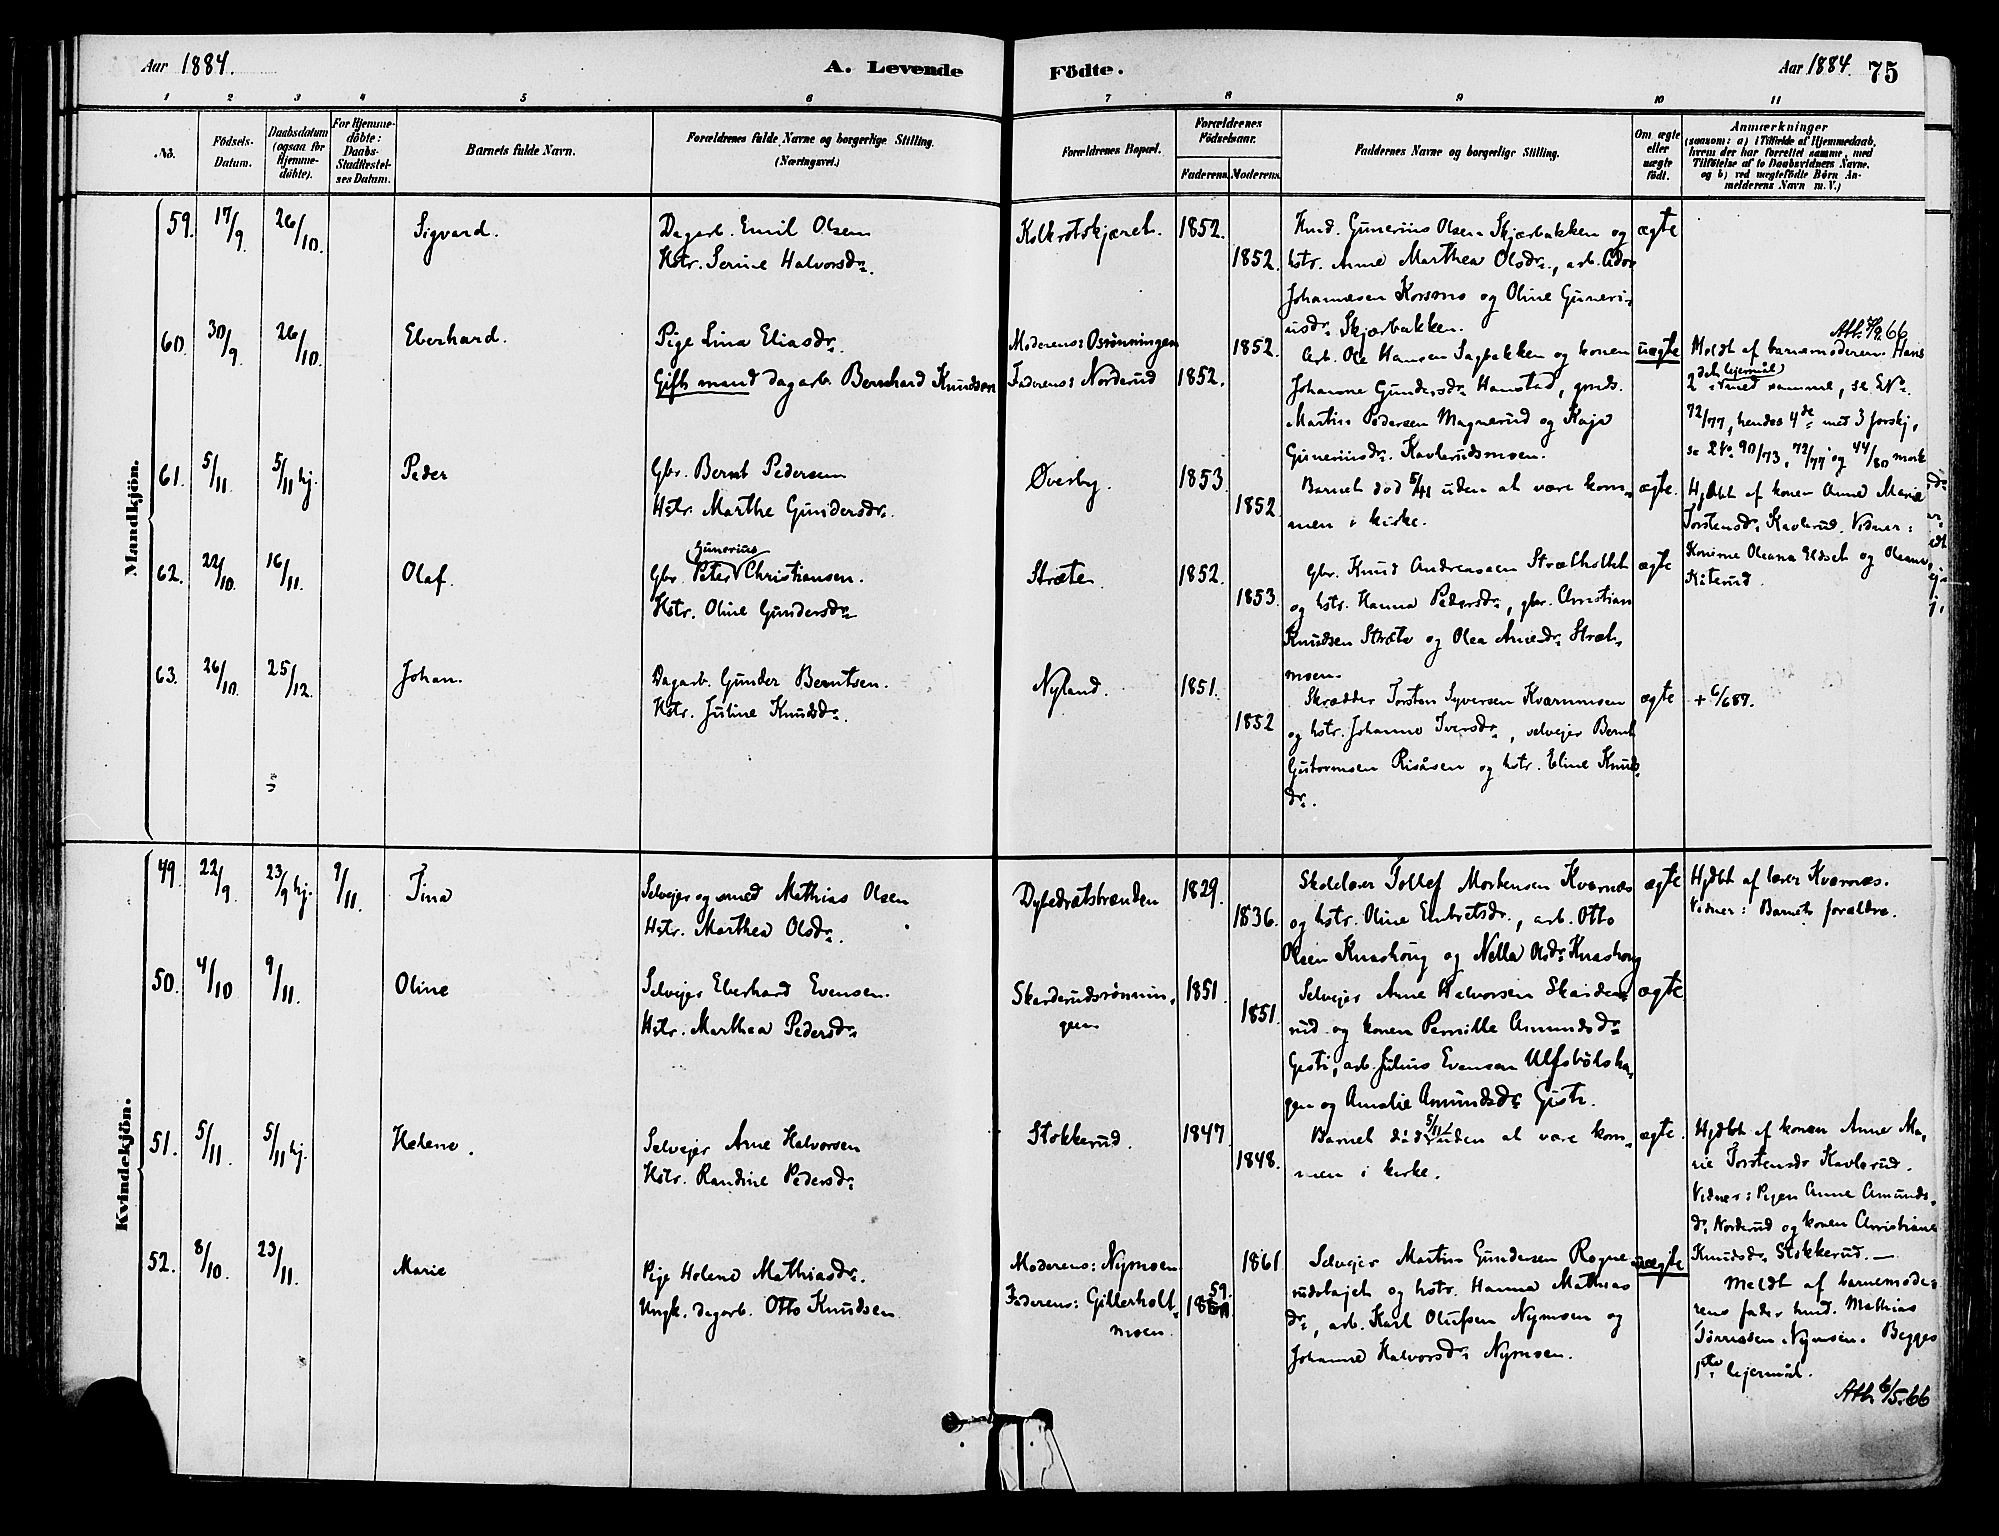 Aar 1884. A. Levende Födte. Aar 1884. 75
1 2 3 4 5 6 7 8 9 10 11
No. Födsels-Datum. Daabsdatum (ogsaa for Hjemme-döbte). For Hjemme-döbte: Daabs-Stadfæstelses Datum. Barnets fulde Navn. Forældrenes fulde Navne og borgerlige Stilling. (Næringsvei.) Forældrenes Bopæl. Forældrenes Födselsaar. Faderens. Moderens. Faddernes Navne og borgerlige Stilling. Om ægte eller uægte födt. Anmærkninger (saasom: a) i Tilfælde af Hjemmedaab, hvem der har forrettet samme, med Tilföielse af to Daabsvidners Navne, og b) ved uægtefödte Börn Anmelderens Navn m. V.)
Mandkjön.
59. 17/9 26/10. Sigvard. Dagarb. Emil Olsen
Hstr. Serine Halvorsdr.
Kolkrotskjæret. 1852. 1852.
Gunerius Olsen Skjærbakken og
hstr. Anne Marthea Olsdr., arb.
Johannesen Korsmo og Oline Guneri-
usdr. Skjærbakken.
ægte
60. 30/9. 26/10. Eberhard. Pige Lina Eliasdr.
Gift mand dagarb. Bernhard Knudsen
Moderens: Osrønningen
Faderens: Norderud 1852. 1852.
Arb. Ole Hansen Sagbakken og konen
Johanne Gundersdr. Hanstad, gmds.
Martin Pedersen Magnerud og Kaja
Guneriusdr. Kavlerudsmoen.
uægte
66
Meldt af barnemoderen. Hans
2det lejermål med samme, se No.
72/77, hendes 4de med 3 forskj.,
se No. 90/73, 72/77 og 44/80
61. 5/11. 5/11 hj. Peder Gbr. Bernt Pedersen
Hstr. Marthe Gundersdr.
Øverby. 1853. 1852.
Barnet død 5/11 uden at være kom-
men i kirke.
ægte.
Hjdbt af konen Anne Marie
Torstensdr. Kavlerud. Vidner:
Konerne Oleana Eldset og Oleana
Kiterud.
62. 22/10. 16/11. Olaf. Gbr. Peter Gunerius Christiansen.
Hstr. Oline Gundersdr.
Stræte. 1852. 1853.
Gbr. Knud Andreassen Strætholtet
og hstr. Hanna Pedersdr., gbr. Christian
Knudsen Stræte og Olea Arnedr. Stræt-
moen.
ægte
63. 26/10. 25/12. Johan. Dagarb. Gunder Berntsen.
Hstr. Juline Knudsdr.
Nyland. 1851. 1852
Skrædder Torsten Syversen Kværnmoen
og hstr. Johanne Iversdr., selvejer Bernt
Gustavmsen Risåsen og hstr. Eline Knuds-
dr.
ægte + 6/6 87.
Kvindekjön.
49. 22/9. 23/9 hj. 9/11. Tina Selvejer og smed Mathias Olsen
Hstr. Marthea Olsdr.
Dybedrætstranden 1829. 1836.
Skolelærer Tollef Mortensen Kværnæs
og hstr. Oline Embretsdr., arb. Otto
Olsen Knashoug og Nella Olsdr. Knashoug
ægte
Hjdbt af lærer Kværnæs.
Vidner: Barnets forældre.
50. 4/10 9/11. Oline Selvejer Eberhard Evensen.
Hstr. Marthea Pedersdr.
Skarderudsrønnin-
gen 1851. 1851.
Selvejer Arne Halvorsen Skarde-
rud og konen Pernille Amundsdr.
Gisti, arb. Julius Evensen Ulfsbølsha-
gen og Amalie Amundsdr. Gisti.
ægte
51. 5/11. 5/11 hj. Helene. Selvejer Arne Halvorsen
Hstr. Randine Pedersdr.
Stokkerud. 1847. 1848.
Barnet død 5/11 uden at være kom-
men i kirke.
ægte.
Hjdbt af konen Anne Ma-
rie Torstensdr Kavlerud.
Vidner: Pigen Anne Amunds-
dr. Norderud og konen Christiane
Knudsdr. Stokkerud.
52. 8/10. 23/11. Marie Pige Helene Mathiasdr.
Ungk. dagarb. Otto Knudsen
Moderens: Nymoen
Faderens: Gillerholt-
moen. 1859. 1861
Selvejer Martin Gundersen Rogne-
rudshøjet og hstr. Hanna Mathias
dr., arb. Karl Olufsen Nymoen og
Johanne Halvorsdr. Nymoen.
uægte
Meldt af barnemode-
rens fader hmd. Mathias
Tørrissen Nymoen. Begges
1ste lejermål.
Att. 6/5.66